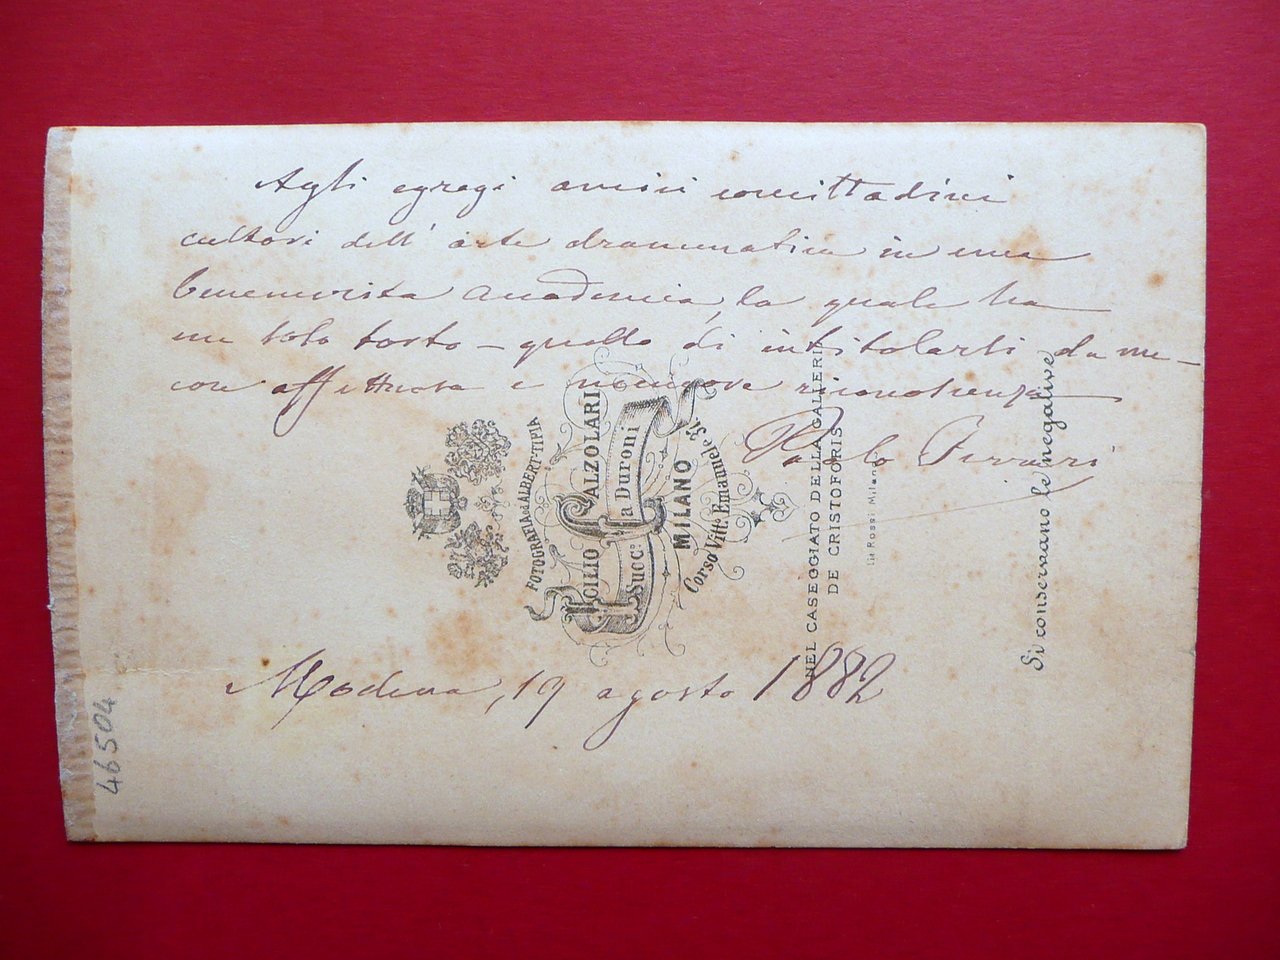 Agli egregi amici concittadini
cultori dell' arte drammatica in una
benemerita Accademia, la quale ha
un solo torto – quello di intitolarsi da me –
con affettuosa e riconoscenza
Paolo Ferrari
Modena, 19 agosto 1882
46504
FOTOGRAFIA ed ALBERT-TIPIA
ICILIO CALZOLARI
Succ.e a Duroni
MILANO
Corso Vitt. Emanuele 31.
NEL CASEGGIATO DELLA GALLERIA
DE CRISTOFORIS
lit Rossi Milano
Si conservano le negative